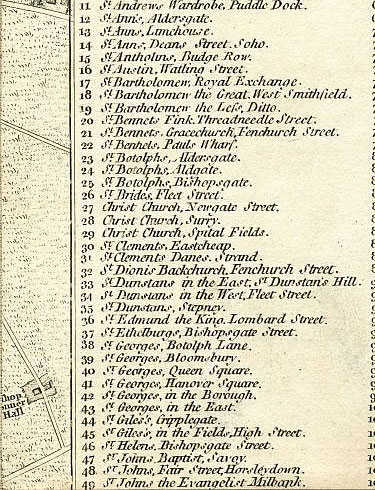 11 St. Andrews Wardrobe, Puddle Dock.
12 St. Anns, Aldersgate.
13 St. Anns, Limehouse.
14 St. Anns, Deans Street. Soho.
15 St. Antholins, Budge Row.
16 St. Austin, Watling Street.
17 St. Bartholomew, Royal Exchange.
18 St. Bartholomew the Great. West Smithfield.
19 St. Bartholomew the Leſs, Ditto.
20 St. Bennets Fink. Threadneedle Street.
21 St. Bennets. Gracechurch, Fenchurch Street.
22 St. Bennets. Pauls Wharf.
23 St. Botolphs, Aldersgate.
24 St. Botolphs, Aldgate.
25 St. Botolphs, Bishopsgate.
26 St. Brides, Fleet Street.
27 Christ Church, Newgate Street.
28 Christ Church, Surry.
29 Christ Church, Spital Fields.
30 St. Clements, Eastcheap.
31 St. Clements Danes. Strand.
32 St. Dionis Backchurch, Fenchurch Street.
33 St. Dunstans in the East, St. Dunstan's Hill.
34 St. Dunstans in the West, Fleet Street.
35 St. Dunstans, Stepney.
36 St. Edmund the King, Lombard Street.
37 St. Ethelburgs, Bishopsgate Street.
38 St. Georges, Botolph Lane.
39 St. Georges, Bloomsbury.
40 St. Georges, Queen Square.
41 St. Georges, Hanover Square.
42 St. Georges, in the Borough.
43 St. Georges, in the East.
44 St. Giles's, Cripplegate.
45 St. Giles's, in the Fields, High Street.
46 St. Helens, Bishopsgate Street.
47 St. Johns, Baptist, Savoy.
48 St. Johns, Fair Street, Horsleydown.
49 St. Johns the Evangelist Milbank.
Hall